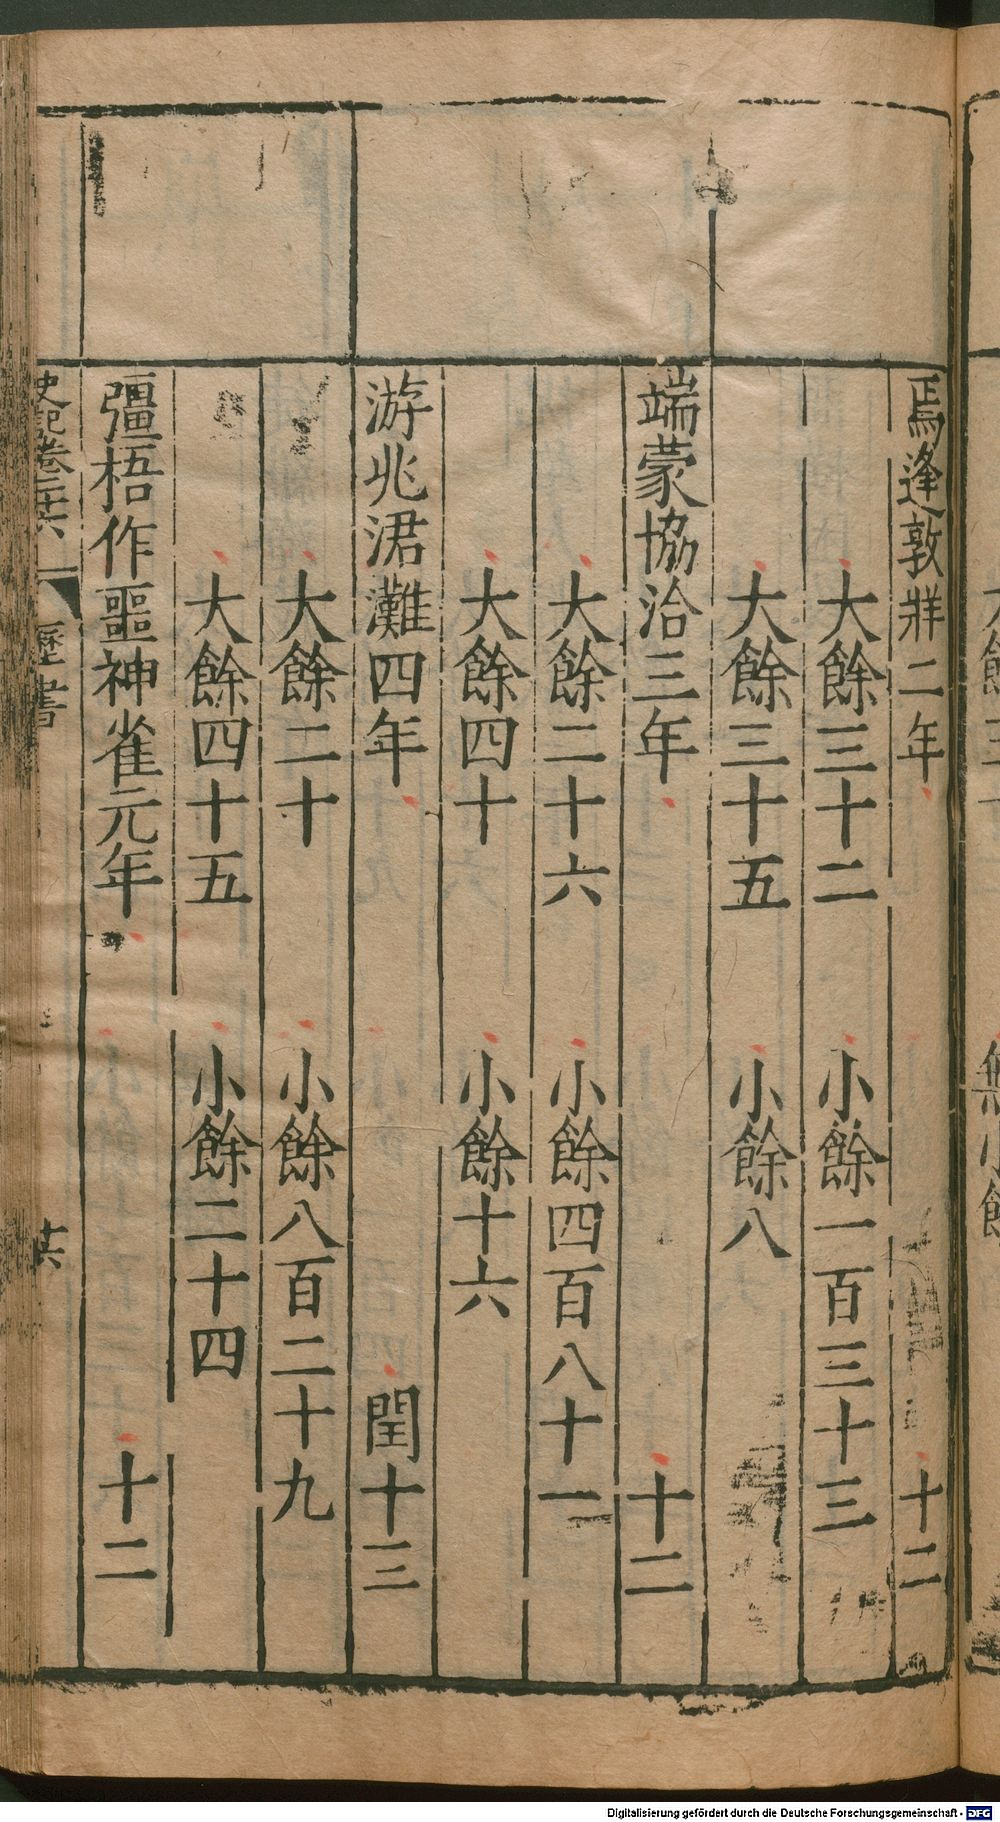 焉逢敦牂二年 十二
大餘三十二 小餘一百三十三
大餘三十五 小餘八
端蒙協洽三年 十二
大餘二十六 小餘四百八十一
大餘四十 小餘十六
游兆涒灘四年 閏十三
大餘二十 小餘八百二十九
大餘四十五 小餘二十四
彊梧作噩神雀元年 十二
史記卷二十六 曆書 十六
Digitalisierung gefördert durch die Deutsche Forschungsgemeinschaft - DFG